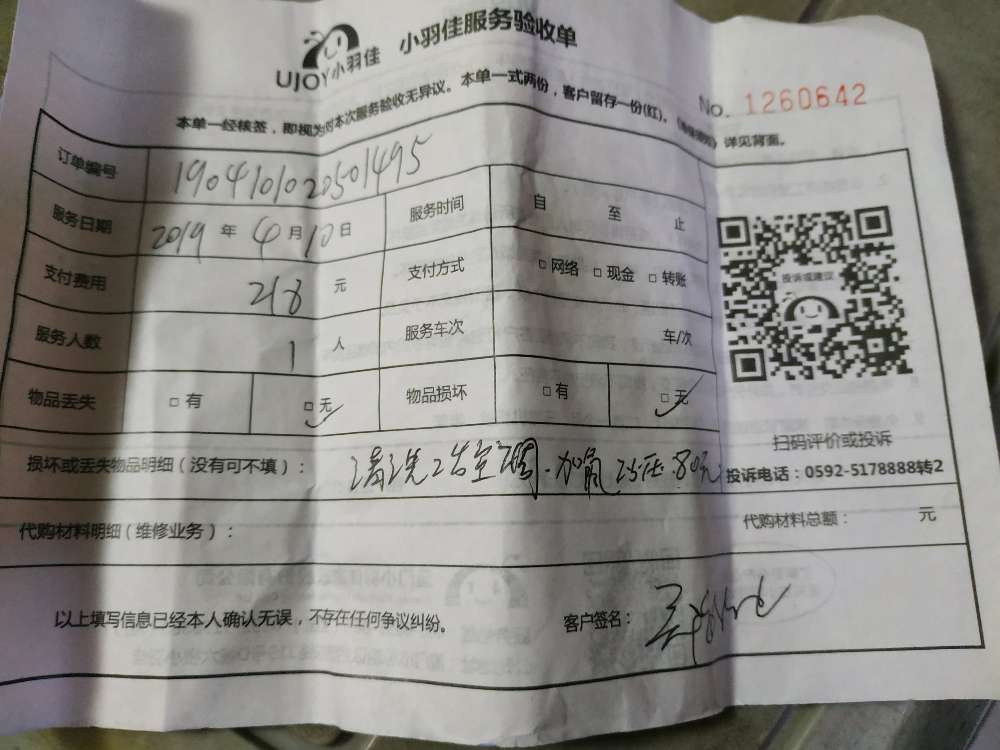 UJOY小羽佳 小羽佳服务验收单
No. 1260642
本单一经核签，即视为对本次服务验收无异议。本单一式两份，客户留存一份(红)。 详见背面。
订单编号 1904101020501495
服务日期 2019 年 4 月 10 日 服务时间 自 至 止
支付费用 218 元 支付方式 □ 网络 □ 现金 □ 转账
服务人数 1 人 服务车次 车/次
物品丢失 □ 有 □ 无 ✓ 物品损坏 □ 有 □ 无 ✓
投诉或建议
扫码评价或投诉
投诉电话：0592-5178888转2
损坏或丢失物品明细（没有可不填）： 清洗2台空调．加氟25压．80元
代购材料明细（维修业务）： 代购材料总额： 元
以上填写信息已经本人确认无误，不存在任何争议纠纷。 客户签名：